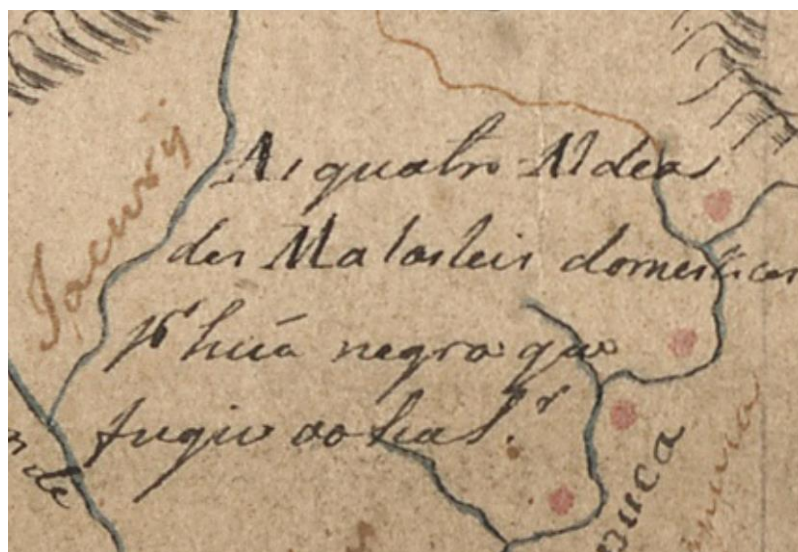 Jacury
As quatro Aldeas
des Malaleis domesticas
p.r huã negra que
fugio ao Sar.r
de
nuca